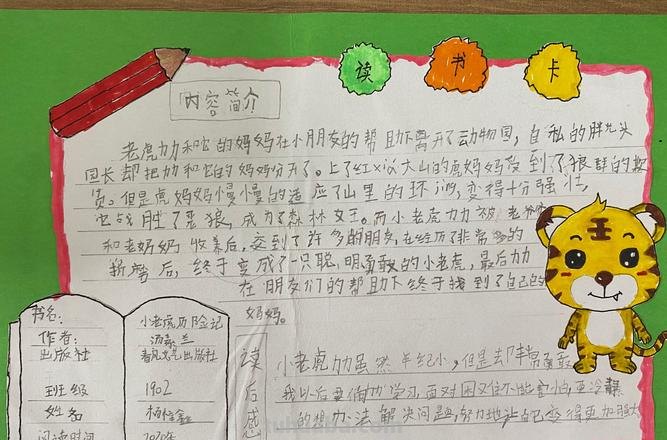 读 书 卡
内容简介
老虎力力和它的妈妈在小朋友的帮助下离开了动物园，自私的胖光头
园长却把力力和它的妈妈分开了。上了红义大山的虎妈妈受到了狼群的欺
负。但是虎妈妈慢慢的适应了山里的环 ，变得十分强壮，
也战胜了恶狼，成为了森林女王。而小老虎力力被老爷爷
和老奶奶收养后，交到了许多的朋友，在经历了非常多的
折磨后，终于变成了一只聪明勇敢的小老虎，最后力力
在朋友们的帮助下终于找到了自己的
妈妈。
书名： 小老虎历险记
作者： 汤素兰
出版社 春风文艺出版社
班级 1902
姓名
阅读时间 2020年
读后感
小老虎力力虽然年纪小，但是却非常勇敢
我以后要向力力学习，面对困难不能害怕，要冷静
的想办法解决问题，努力地让自己变得更加强大